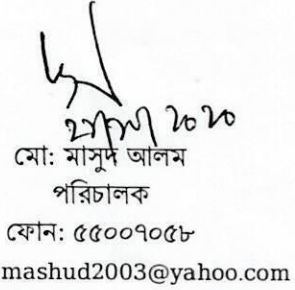 মো: মাসুদ আলম
পরিচালক
ফোন: ৫৫০০৭০৫৮
mashud2003@yahoo.com